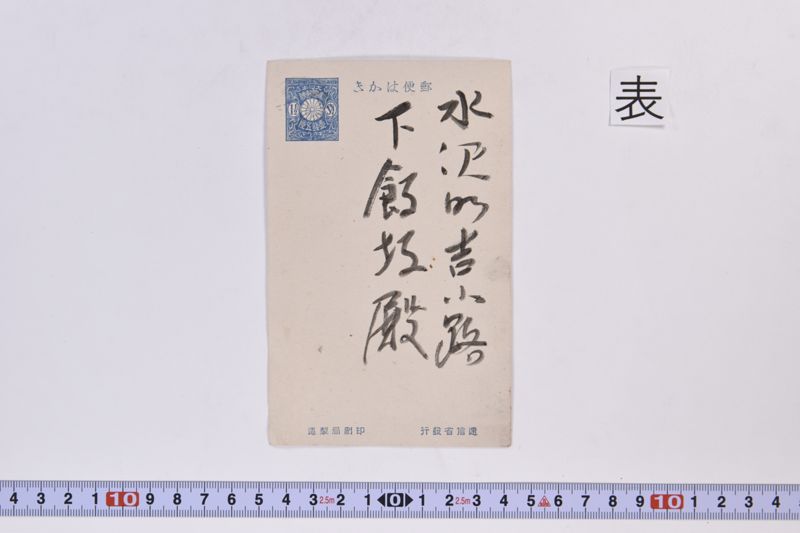 郵便はかき
水沢町吉小路
下飯坂殿
逓信省発行
印刷局製造
表
4 3 2 1 10 9 8 7 6 5 4 3 2.5m 2 1 0 1 2 2.5m 3 4 5 6 7 8 9 10 1 2 3 4